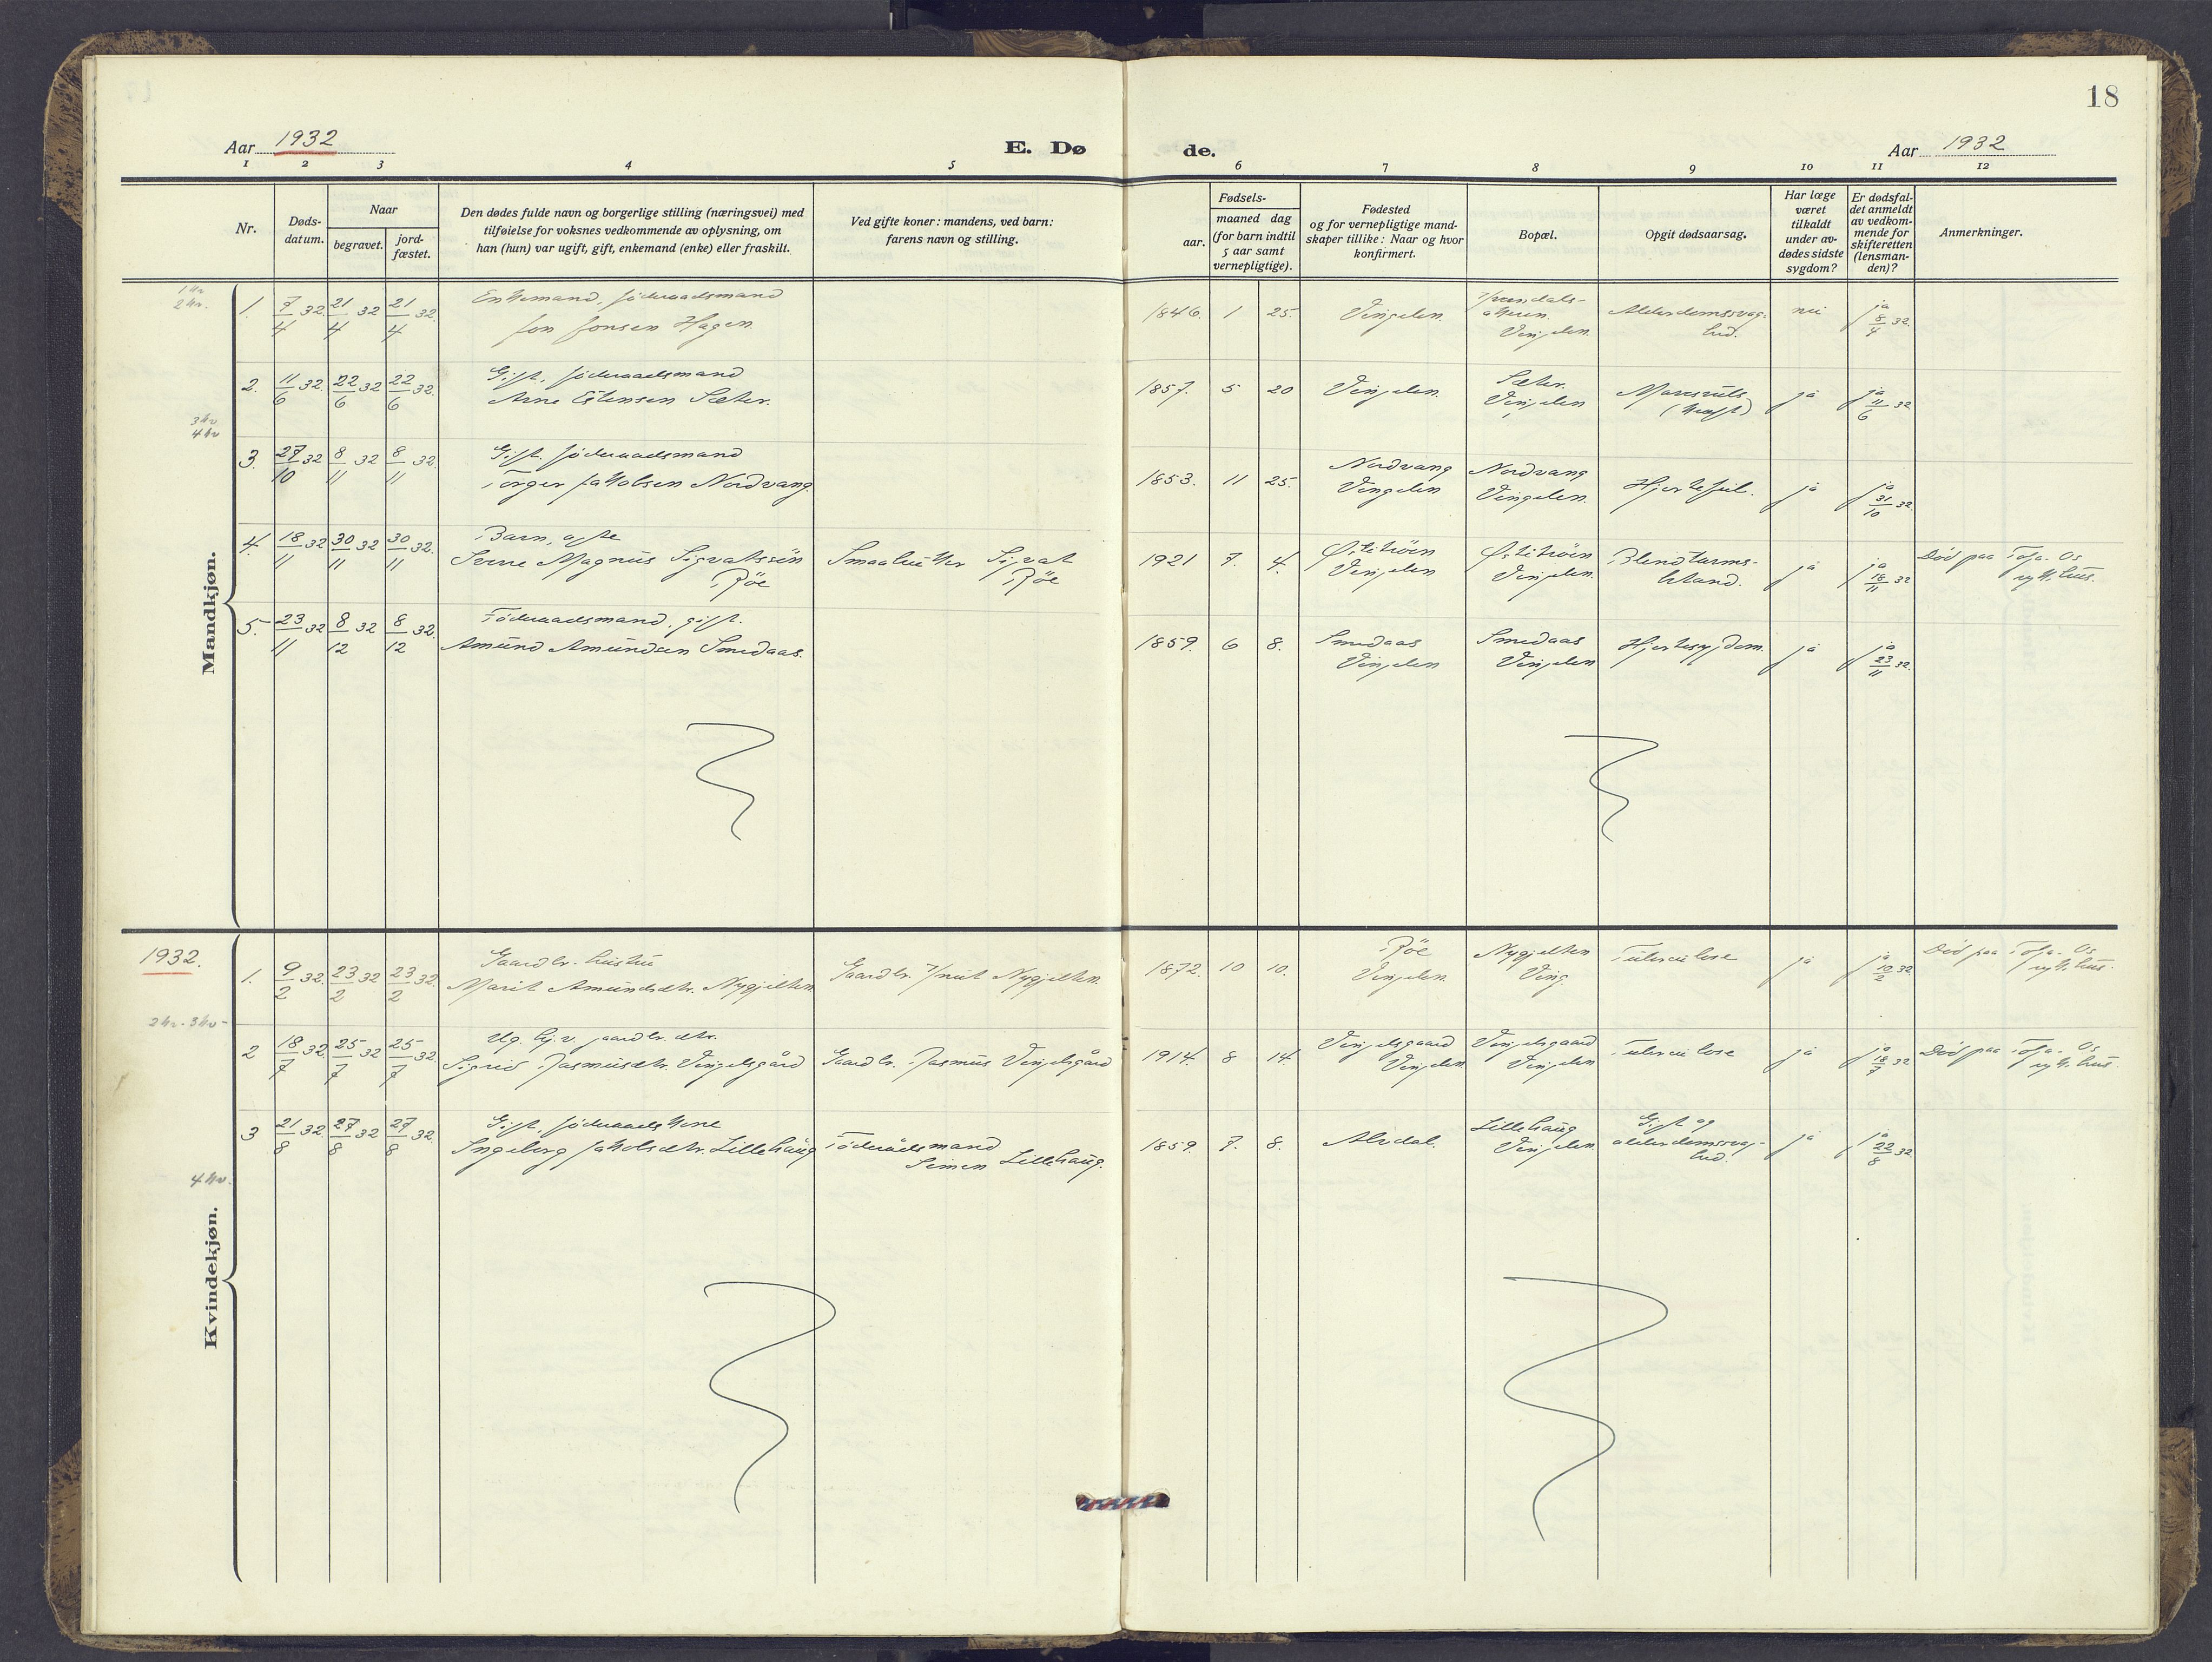 18
Aar 1932
E. Dø
de.
Aar 1932
1 2 3 4 5 6 7 8 9 10 11 12
Nr.
Døds-
datum.
Naar
begravet.
jord-
fæstet.
Den dødes fulde navn og borgerlige stilling (næringsvei) med
tilføielse for voksnes vedkommende av oplysning, om
han (hun) var ugift, gift, enkemand (enke) eller fraskilt.
Ved gifte koner: mandens, ved barn:
farens navn og stilling.
Fødsels-
aar.
maaned dag
(for barn indtil
5 aar samt
vernepligtige).
Fødested
og for vernepligtige mand-
skaper tillike: Naar og hvor
konfirmert.
Bopæl.
Opgit dødsaarsag.
Har læge
været
tilkaldt
under av-
dødes sidste
sygdom?
Er dødsfal-
det anmeldt
av vedkom-
mende for
skifteretten
(lensman-
den)?
Anmerkninger.
Mandkjøn.
1 kv
2 kv.
1. 7/4 32. 21/4 32 21/4 32.
Enkemand, föderaadsmand
Jon Jonsen Hagen.
1846. 1 25.
Vingelen.
Vingelen.
Alderdomssvag-
hed.
nei
ja
8/4 32.
2. 11/6 32 22/6 32 22/6 32.
Gift, föderaadsmand
Arne Estensen Sæter.
1857. 5 20
Vingelen.
Sæter.
Vingelen
(kræft)
ja
ja
11/6 32
3 kv
4 kv
3. 27/10 32 8/11 32 8/11 32.
Gift. föderaadsmand
Torger Jakobsen Nordvang.
1853. 11 25.
Nordvang
Vingelen
Nordvang
Vingelen.
Hjertefeil.
ja
ja
31/10 32.
4. 18/11 32 30/11 32 30/11 32.
Barn, ægte
Sverre Magnus Sigvaldssön
Röe
Smaabruker Sigvat
Röe
1921 7. 4.
Vingelen
Vingelen.
Blendtarms-
betænd.
ja
ja
18/11 32
Död paa Tolga-Os
sykehus.
5. 23/11 32 8/12 32 8/12 32.
Föderaadsmand, gift.
Amund Amundsen Smedaas.
1859. 6 8.
Smedaas
Vingelen
Smedaas
Vingelen
Hjertesygdom.
ja
ja
23/11 32.
1932.
Kvindekjøn.
1. 9/2 32. 23/2 32 23/2 32.
Gaardbr. hustru
Marit Amundsdtr. Nygjelten
Gaardbr. Knut Nygjelten.
1872. 10 10.
Röe
Vingelen.
Nygjelten
Ving.
Tuberculose
ja
ja
10/2 32
Död paa Tolga-Os
sykehus.
2 kv. 3 kv-
2 18/7 32. 25/7 32 25/7 32.
Ug. hj.v. gaardbr. dtr.
Sigrid Rasmusdtr. Vingelsgård
Gaardbr. Rasmus Vingelsgård
1914. 8 14.
Vingelsgaard
Vingelen
Vingelsgaard
Vingelen
Tuberculose
ja
ja
18/7 32
Död paa Tolga-Os
sykehus.
3 21/8 32. 27/8 32 27/8 32.
Gift, föderaadskone
Ingeborg Jakobsdtr. Lillehaug
Föderådsmand
Simen Lillehaug.
1859. 7. 8.
Alvdal.
Lillehaug
Vingelen.
Gigt og
alderdomssvag-
hed.
ja
ja
22/8 32.
4 kv.